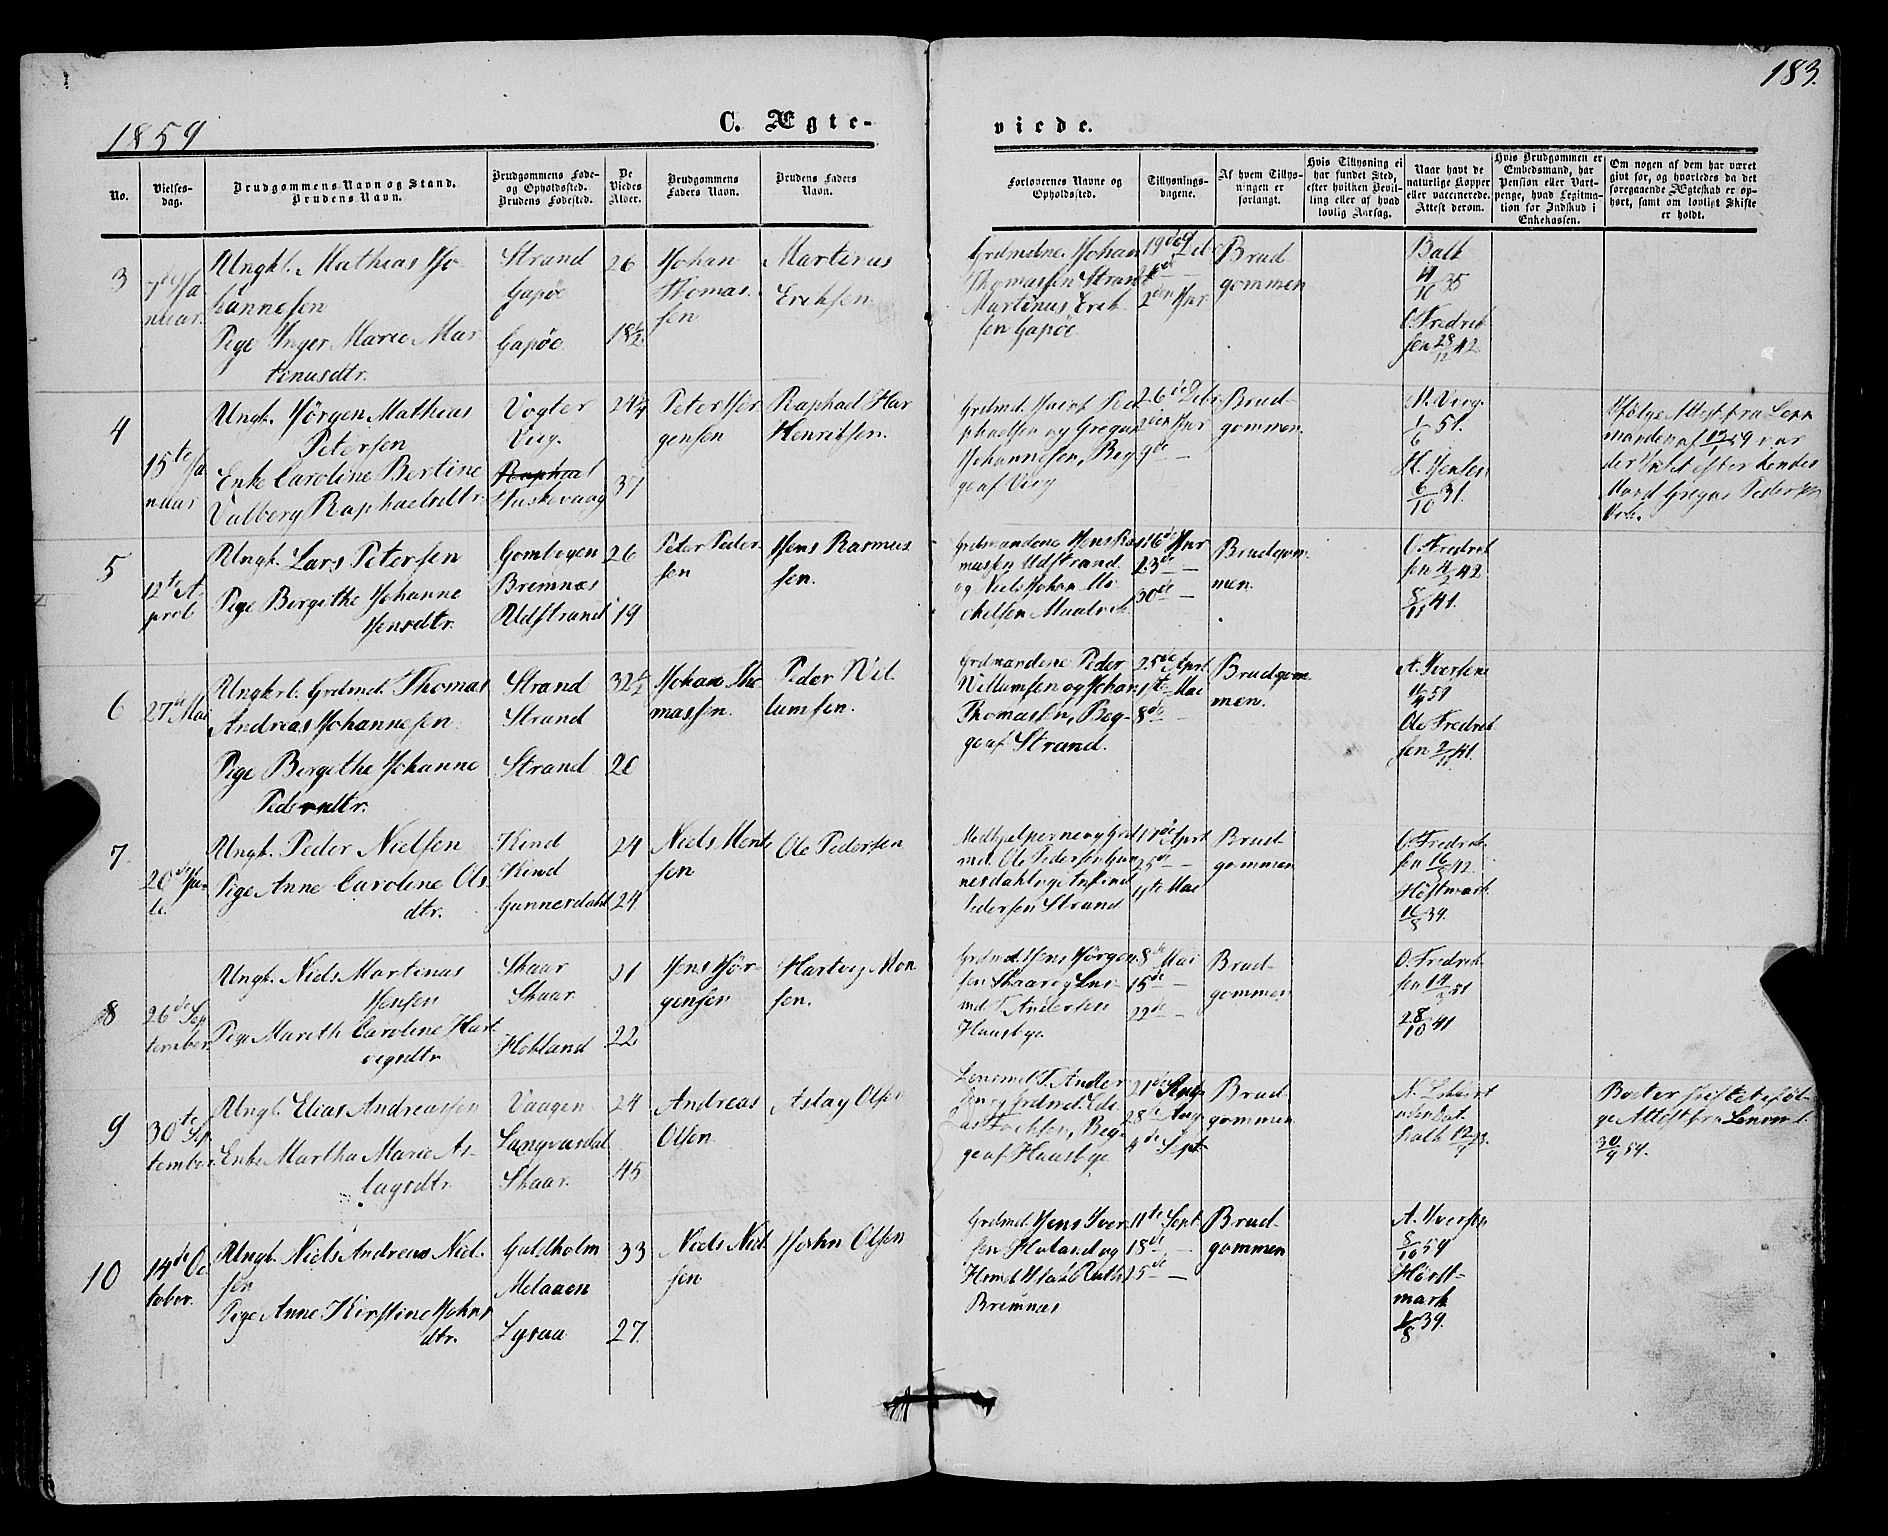 183.
1859
C. Ægte-
viede.
No.
Vielses-
dag.
Brudgommens Navn og Stand.
Brudens Navn.
Brudgommens Føde-
og Opholdssted.
Brudens Fødested.
De
Viedes
Alder.
Brudgommens
Faders Navn.
Brudens Faders
Navn.
Forlovernes Navne og
Opholdssted.
Tillysnings-
dagene.
Af hvem Tillys-
ningen er
forlangt.
Hvis Tillysning ei
har fundet Sted,
efter hvilken Bevil-
ling eller af hvad
lovlig Aarsag.
Naar havt de
naturlige Kopper
eller vaccinerede.
Attest derom.
Hvis Brudgommen er
Embedsmand, har
Pension eller Vart-
penge, hvad Legitima-
tion for Indskud i
Enkekassen.
Om nogen af dem har været
gift før, og hvorledes da det
foregaaende Ægteskab er op-
hørt, samt om lovligt Skifte
er holdt.
3
7de Ja
nuar.
Ungkl. Mathias Jo-
hannesen
Pige Inger Marie Mar
tinusdtr.
Strand
Gapøe
Gapøe.
26
18 1/2
Johan
Thomas.
sen
Martinus
Eriksen.
Grdmdne. Johan
Thomassen Strand
Martinus Erik-
sen Gapøe
19de Deb
26de
2den Jnr
Brud
gommen
Balk
35
O. Fredrik
sen 28/12 42.
4
15te Ja
nuar
Ungk. Jørgen Mathias
Petersen
Enke Caroline Bertine
Valberg Raphaelsdtr.
Vogter
Viig.
Raphael
Huskevaag
24 1/4
37
Peter Jør
gensen
Raphael Har
Henriksen.
Johannesen, Beg-
ge af Viig
26de
2den Jnr
9de —
Brud-
gommen.
51.
H. Jensen
6/10 31.
Ifølge Attest fra Lens
manden af 12/1 59 var
der Intet efter hendes
Mand Gregus Pedersen
5
12te A
pril
Ungk. Lars Petersen
Pige Bergithe Johanne
Jensdtr.
Gombogen
Bremnæs
Udstrand
26
19
Peter Peder-
sen
Jens Rasmus
sen.
Grdmandene Jens Ras
mussen Udstrand
og Niels Johan Mi
chelsen Maalvik
16de Jnr
23de —
30de —
Brudgom-
men.
O. Fredrik
sen 4/2 42.
8/11 41.
6
27de Mai
Ungkrl. Grdmd. Thomas
Andreas Johannesen
Pige Bergithe Johanne
Pedersdtr.
Strand
Strand
Strand
32 1/2
20
Johan Tho
massen.
Peder Vil
lumsen.
Grdmandene Peder
Villumsen og Johan
Thomassen, Beg-
ge af Strand.
25de Aprl
1ste Mai
8de —
Brudgom
men.
A. Iversen
11/4 59
Ole Fredrik
sen 2/11 41.
7
20de Ju-
li.
Ungk. Peder Nielsen
Pige Anne Caroline Ols
dtr.
Kind
Kind
Gunnersdahl
24
24
Niels Jent
sen
Ole Pedersen
Medhjelperne og Grd
md. Ole Pedersen Gun
nersdahl og
Pedersen Strand
17de Aprl
25de —
1ste Mai
Brud
gommen
O. Fredrik-
sen 16/3 42.
Høstmark
11/5 39.
8
26de Sep
tember
Ungk. Niels Martinus
Jensen
Pige Mareth Caroline Hart
vigsdtr.
Skaar
Skaar
Holland
21
22
Jens Jør-
gensen
Hartvig Mon
sen.
Grdmd. Jens Jørgen
sen Skaar og Lns-
md T. Andersen
Huusbye.
8de Mai
15de —
22de —
Brud-
gommen
O. Fredrik-
sen 14/3 51
28/10 41
9
30te Sep
tember
Ungk. Elias Andreassen
Enke Martha Marie As-
lagsdtr.
Vaagen
Langvasdal
Skaar.
24
45
Andreas
Olsen.
Aslag Olsen
Lensmd. T. Ander
sen og Grdmd.
Beg-
ge af Huusbye
21de Aug
28de Aug
4de Sept
Brud-
gommen
Boet er skiftet iføl-
ge Attest fra Lensmd.
30/9 59.
10
14de Oc
tober.
Ungk. Niels Andreas Niel-
sen
Pige Anne Kirstine Johns
dtr.
Guldholm
Melaaen
Lysaa
33
27.
Niels Niel
sen
John Olsen
Grdmd. Jens Iver-
sen Holand og
Bremnæs
11te Sept
18de —
25de —
Brud-
gommen
A. Iversen
8/10 59
Høst-
mark
1/8 39.